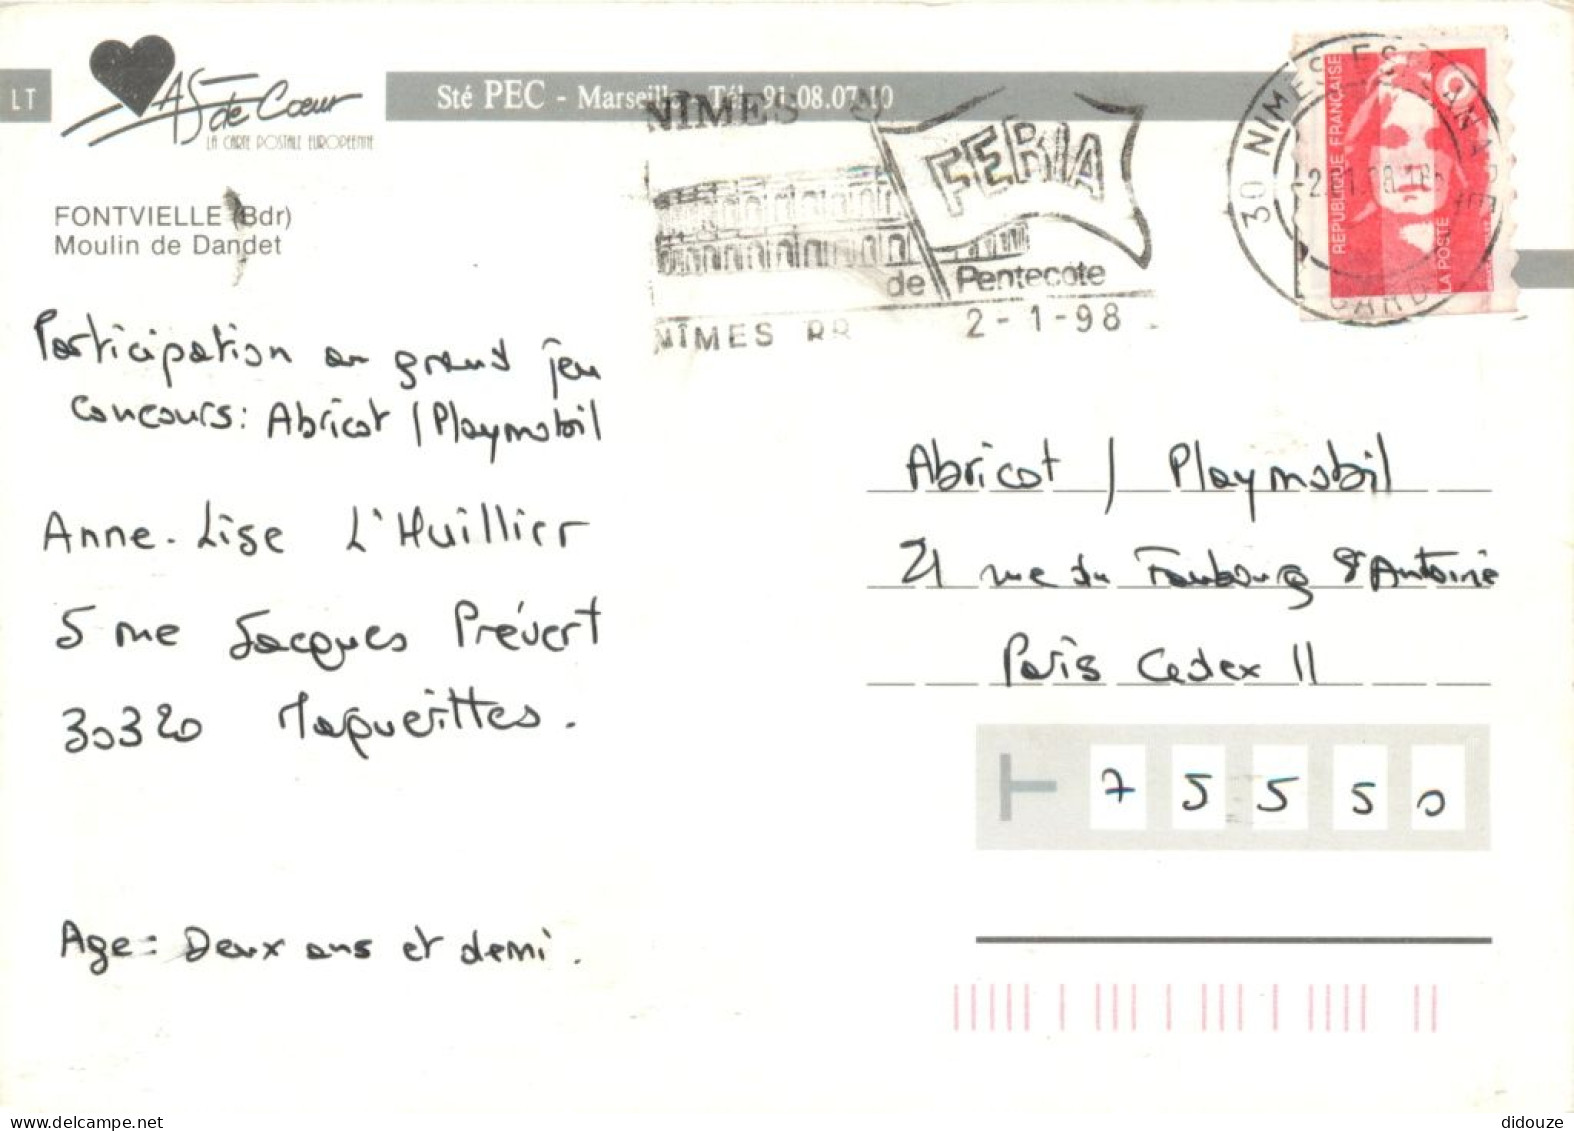 LT
AS de Cœur
LA CARTE POSTALE EUROPÉENNE
Sté PEC - Marseille - Tél. 91.08.07.10
FONTVIELLE (Bdr)
Moulin de Dandet
NIMES
FERIA
de Pentecôte
NÎMES RP 2-1-98
30 NIMES
GARD
RÉPUBLIQUE FRANÇAISE
LA POSTE
Participation au grand jeu
concours: Abricot / Playmobil
Anne-Lise L'Huillier
5 rue Jacques Prévert
30320 Marguerittes.
Age: Deux ans et demi.
Abricot / Playmobil
21 rue du Faubourg St Antoine
Paris Cedex 11
75550
didouze